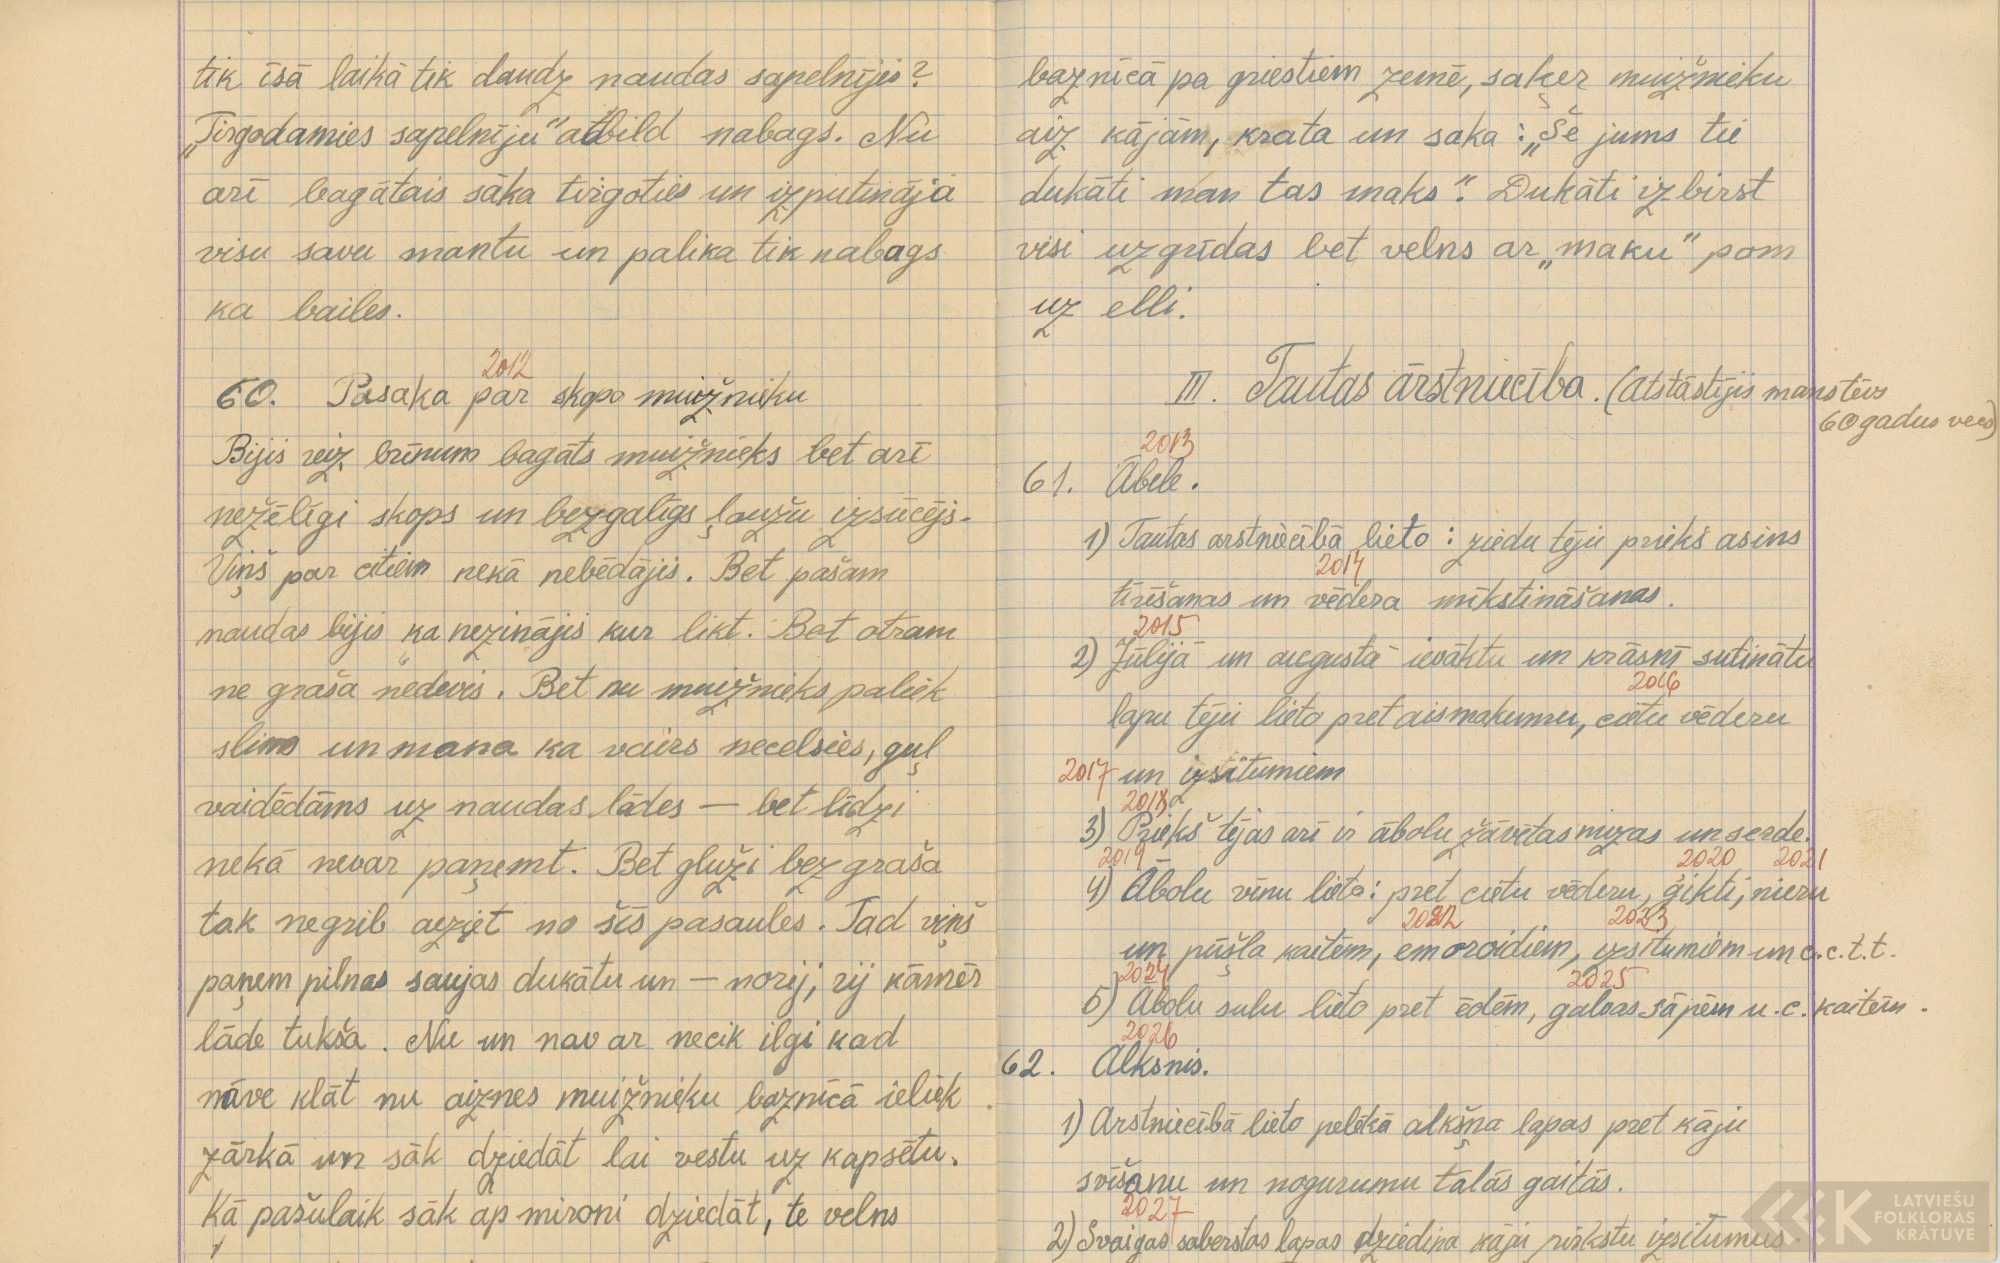 tik īsā laikā tik daudz naudas sapelnījis?
„Tirgodamies sapelnīju" atbild nabags. Nu
arī bagātais sāka tirgoties un izputināja
visu savu mantu un palika tik nabags
ka bailes.
2012
60. Pasaka par skopo muižnieku
Bijis reiz brīnum bagāts muižnieks bet arī
nežēlīgi skops un bezgalīgs ļaužu izsūcējs.
Viņš par citiem nekā nebēdājis. Bet pašam
naudas bijis ka nezinājis kur likt. Bet otram
ne graša nedevis. Bet nu muižnieks paliek
slims un mana ka vairs necelsies, guļ
vaidēdāms uz naudas lādes — bet līdzi
nekā nevar paņemt. Bet gluži bez graša
tak negrib aiziet no šīs pasaules. Tad viņš
paņem pilnas saujas dukātu un — norij, rij kāmēr
lāde tukša. Nu un nav ar necik ilgi kad
nāve klāt nu aiznes muižnieku baznīcā ieliek
zārkā un sāk dziedāt lai vestu uz kapsētu.
Kā pašulaik sāk ap mironi dziedāt, te velns
baznīcā pa griestiem zemē, saķer muižnieku
aiz kājām, krata un saka: „Še jums tie
dukāti man tas maks". Dukāti izbirst
visi uz grīdas bet velns ar „maku" pom
uz elli.
III. Tautas ārstniecība. (Atstāstījis mans tēvs
60 gadus vecs)
2013
61. Ābele.
1) Tautas arstniecībā lieto: ziedu tēju priekš asins
2014
tīrīšanas un vēdera mīkstināšanas.
2015
2) Jūlijā un augustā ievāktu un krāsnī sutinātu
2016
lapu tēju lieto pret aismakumu, cietu vēderu
2017 un izsitumiem
2018
3) Priekš tējas arī ir ābolu žāvētas mizas un serde.
2019 2020 2021
4) Ābolu vīnu lieto: pret cietu vēderu, ģikti, nieru
2022 2023
un pūšļa kaitēm, emoroidiem, izsitumiem un c.c.t.t.
2024 2025
5) Ābolu sulu lieto pret ēdēm, galvas sāpēm u.c. kaitēm.
2026
62. Alksnis.
1) Arstniecībā lieto pelēkā alkšņa lapas pret kāju
svīšanu un nogurumu tālās gaitās.
2027
2) Svaigas saberstas lapas dziedina kāju pirkstu izsitumus.
LATVIEŠU
FOLKLORAS
KRĀTUVE